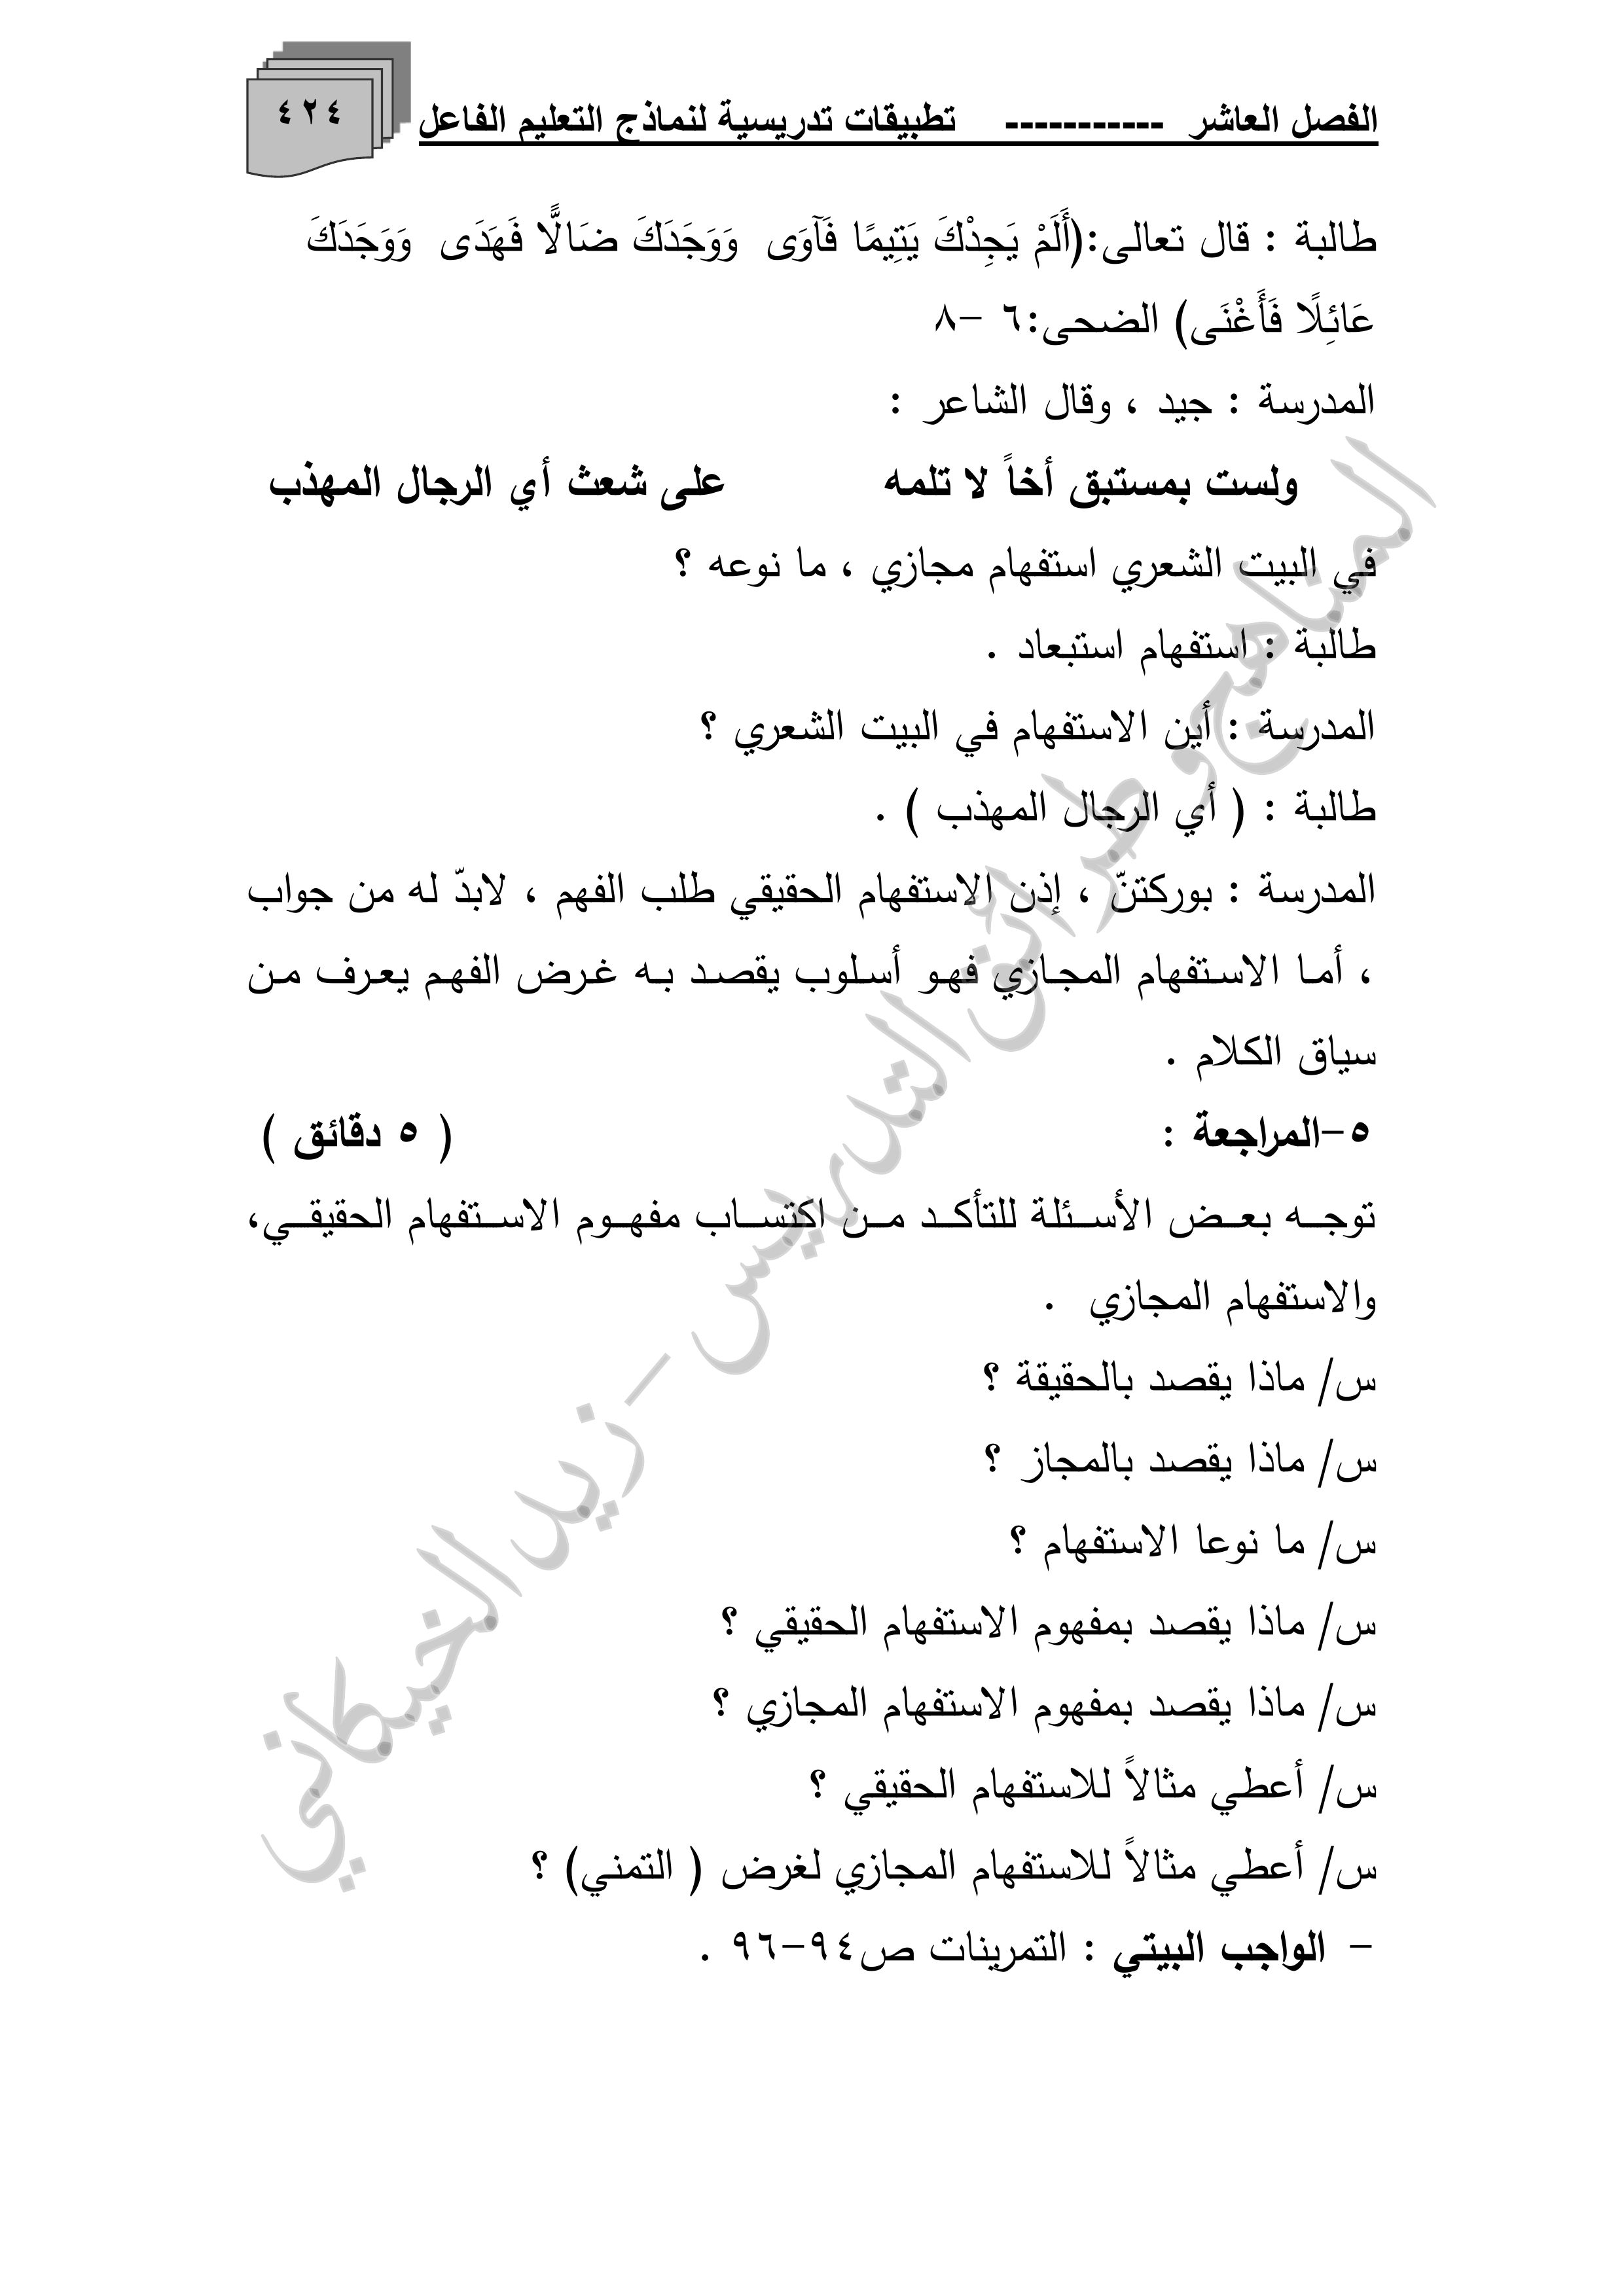 الفصل العاشر ----------- تطبيقات تدريسية لنماذج التعليم الفاعل
٤٢٤
طالبة : قال تعالى:(أَلَمْ يَجِدْكَ يَتِيمًا فَآَوَى وَوَجَدَكَ ضَالًّا فَهَدَى وَوَجَدَكَ
عَائِلًا فَأَغْنَى) الضحى:٦ -٨
المدرسة : جيد ، وقال الشاعر :
ولست بمستبق أخاً لا تلمه على شعث أي الرجال المهذب
في البيت الشعري استفهام مجازي ، ما نوعه ؟
طالبة : استفهام استبعاد .
المدرسة : أين الاستفهام في البيت الشعري ؟
طالبة : ( أي الرجال المهذب ) .
المدرسة : بوركتنّ ، إذن الاستفهام الحقيقي طلب الفهم ، لابدّ له من جواب
، أما الاستفهام المجازي فهو أسلوب يقصد به غرض الفهم يعرف من
سياق الكلام .
٥-المراجعة : ( ٥ دقائق )
توجه بعض الأسئلة للتأكد من اكتساب مفهوم الاستفهام الحقيقي،
والاستفهام المجازي .
س/ ماذا يقصد بالحقيقة ؟
س/ ماذا يقصد بالمجاز ؟
س/ ما نوعا الاستفهام ؟
س/ ماذا يقصد بمفهوم الاستفهام الحقيقي ؟
س/ ماذا يقصد بمفهوم الاستفهام المجازي ؟
س/ أعطي مثالاً للاستفهام الحقيقي ؟
س/ أعطي مثالاً للاستفهام المجازي لغرض ( التمني) ؟
- الواجب البيتي : التمرينات ص٩٤-٩٦ .
المناهج وطرائق التدريس - زيد الخيكاني